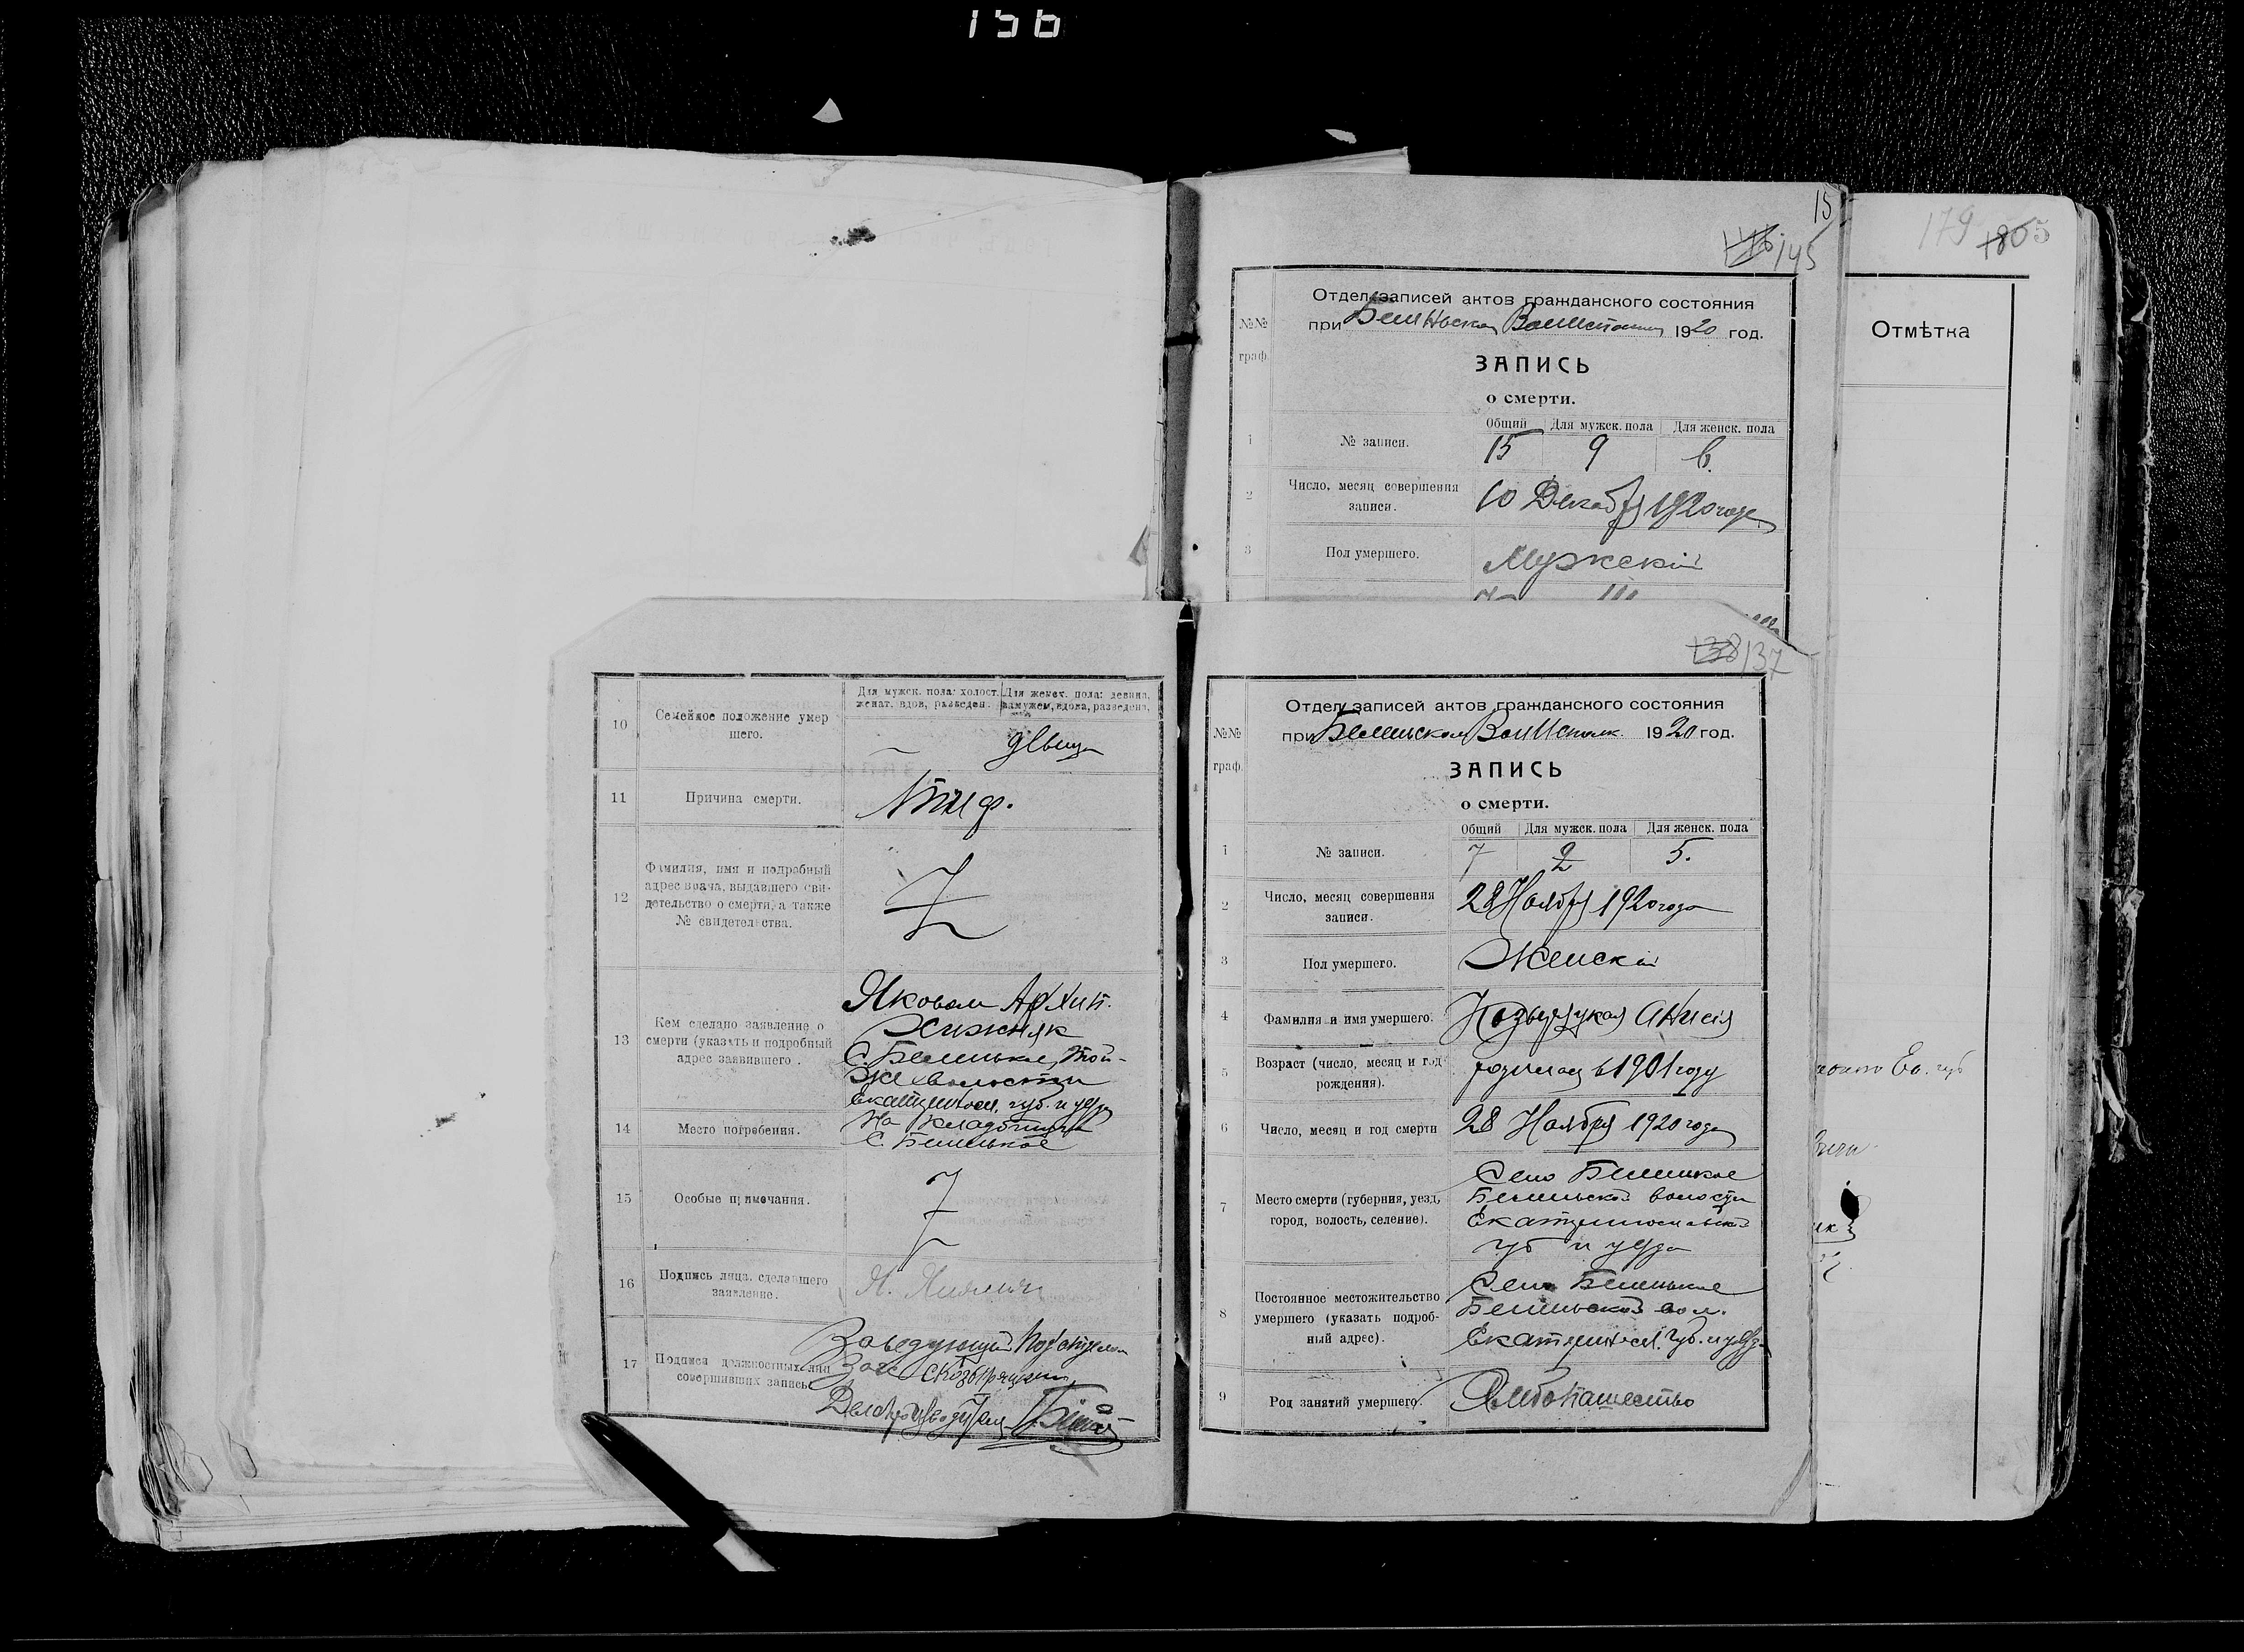 156
15
146 145
179 1805
Отмѣтка
№№ граф.
Отдел записей актов гражданского состояния
при 1920 год.
ЗАПИСЬ
о смерти.
Общий Для мужск. пола Для женск. пола
1 № записи. 15 9 6.
2 Число, месяц совершения
записи.
10 Декабря 1920 года
3 Пол умершего. Мужский
138 137
10 Семейное положение умер
шего.
Для мужск. пола: холост. Для женск. пола: девица,
женат, вдов, разведен. замужем, вдова, разведена.
— дѣвица
11 Причина смерти. Тиф.
12 Фамилия, имя и подробный
адрес врача, выдавшего сви-
детельство о смерти, а также
№ свидетельства.
13 Кем сделано заявление о
смерти (указать и подробный
адрес заявившего).
Яковом Архип.
Хижняк
С. Беленькое, той-
же волости
Екатериносл. губ. и уезда
14 Место погребения.
На кладбищи
С. Беленькое
15 Особые примечания.
16 Подпись лица, сделавшего
заявление.
17 Подписи должностных лиц
совершивших запись
Заведующий Подотделом
Загс
Делопроизводитель
№№ граф.
Отдел записей актов гражданского состояния
при Беленьском 1920 год.
ЗАПИСЬ
о смерти.
Общий Для мужск. пола Для женск. пола
1 № записи. 7 2 5.
2 Число, месяц совершения
записи.
28 Ноября 1920 года
3 Пол умершего. Женский
4 Фамилия и имя умершего. Анисия
5 Возраст (число, месяц и год
рождения).
родилась в 1901 году
6 Число, месяц и год смерти 28 Ноября 1920 года
7 Место смерти (губерния, уезд,
город, волость, селение).
Село Беленькое
Беленьской волости
Екатеринославской
губ и уезда
8 Постоянное местожительство
умершего (указать подроб-
ный адрес).
Село Беленькое
Беленьской вол.
Екатериносл. губ. и уезда
9 Род занятий умершего. Хлебопашество